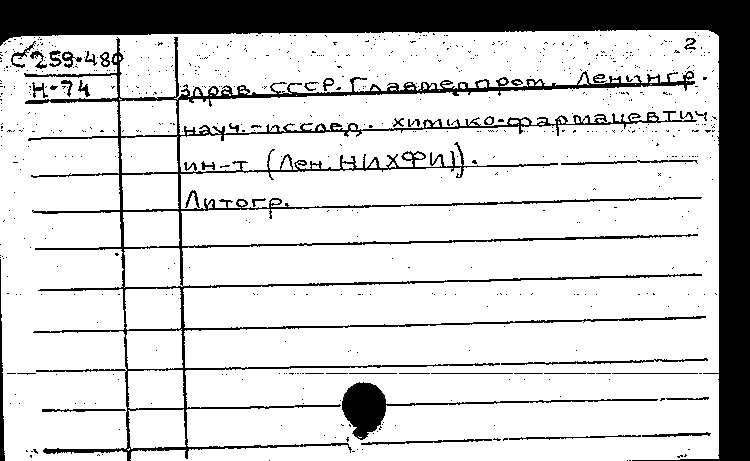 2
С 259.480
Н-74
здрав. СССР. Главмедпром. Ленингр.
науч.-исслед. химико-фармацевтич.
ин-т (Лен. НИХФИ).
Литогр.